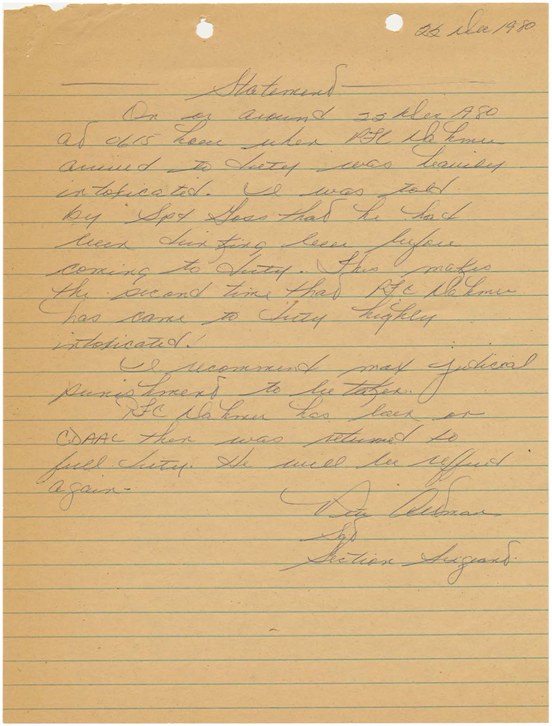 22 Dec 1980
Statement
On or around 22 Dec 1980
at 0615 hour when PFC Dahmer
arrived to duty was heaviley
intoxicated. I was told
by Sp4 Goss that he had
been drinking beer before
coming to duty. This makes
the second time that PFC Dahmer
has came to duty highly
intoxicated.
I recommend max judicial
punishment to be taken.
PFC Dahmer has been on
CDAAC then was returned to
full duty. He will be reffued
again.
Sgt
Section Sergeant